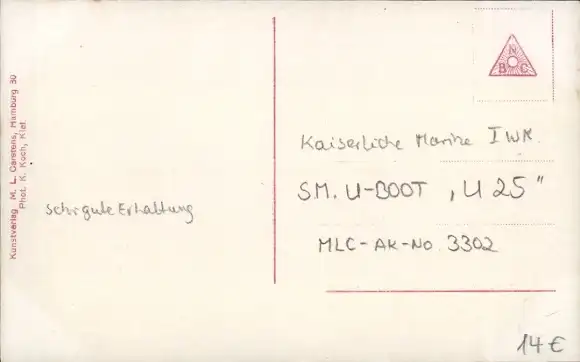 Kunstverlag M. L. Carstens, Hamburg 30
Phot. K. Koch, Kiel
Sehr gute Erhaltung
N
B C
Kaiserliche Marine I WK.
SM. U-BOOT „U 25"
MLC-AK-No 3302
14 €